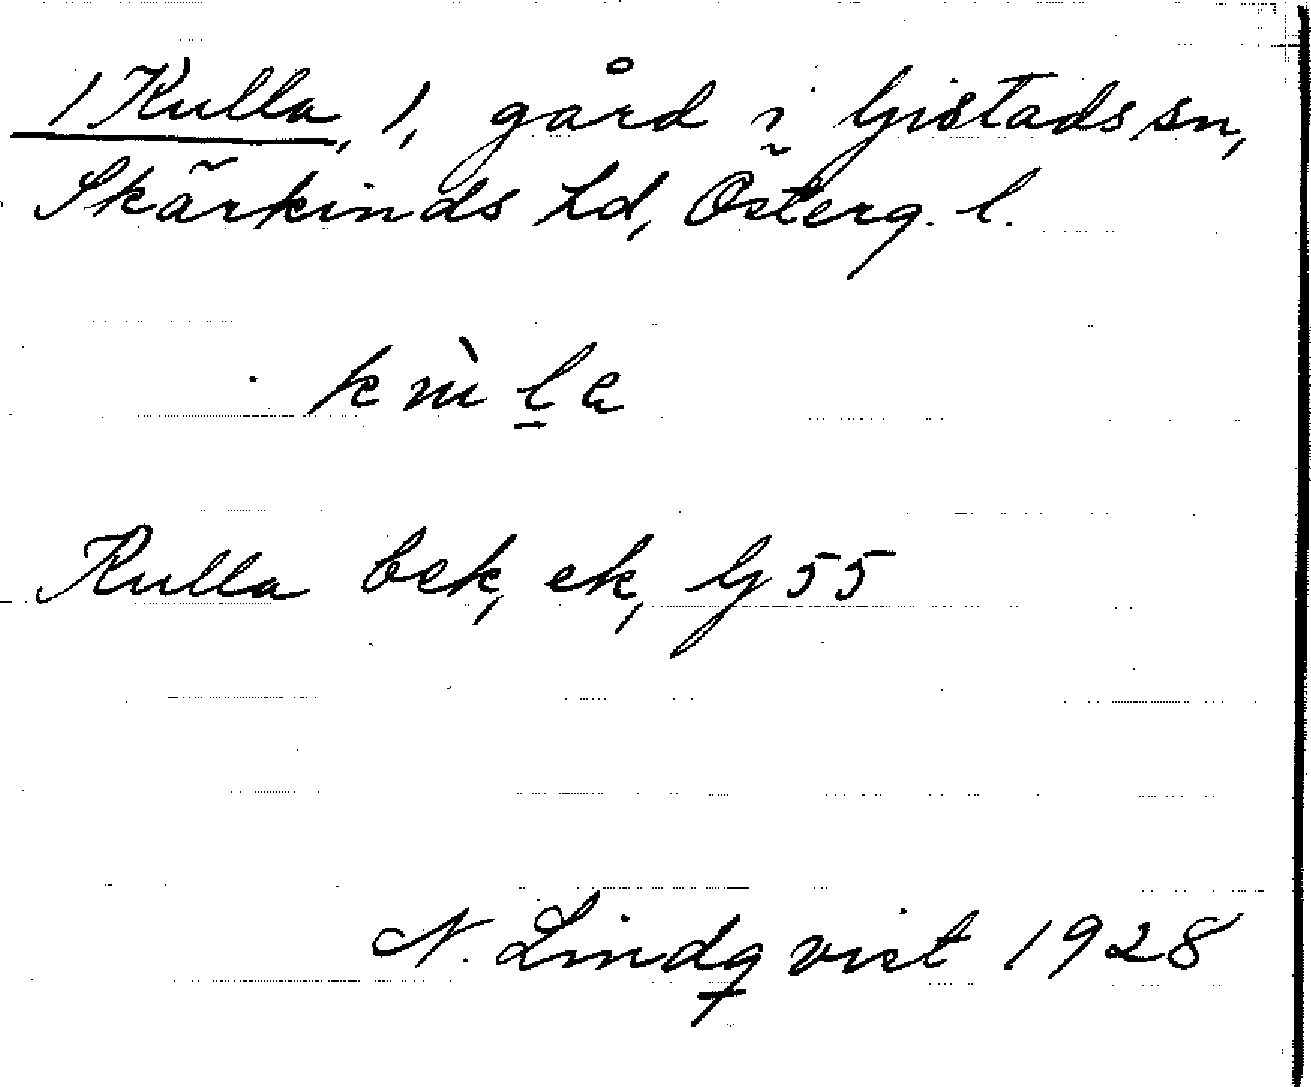 1 Kulla, 1, gård i Gistads sn,
Skärkinds hd, Österg. l.
Kulla bek, ek, G 55
N. Lindqvist 1928